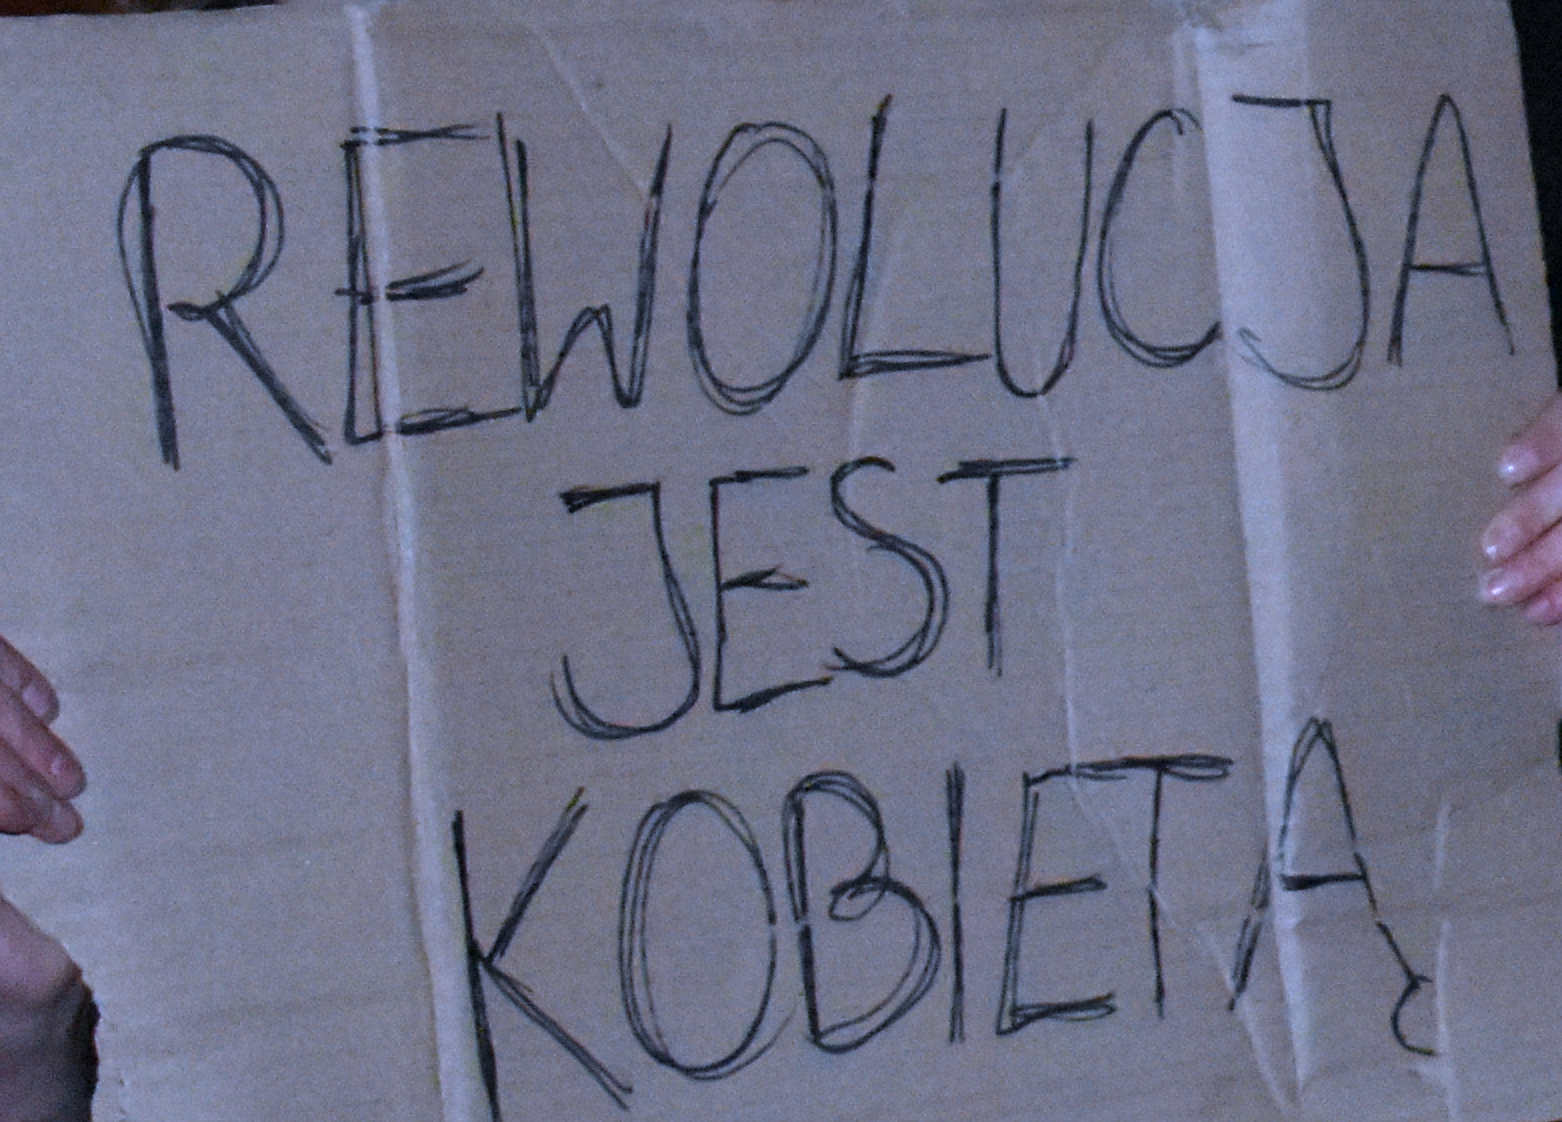 REWOLUCJA
JEST
KOBIETĄ